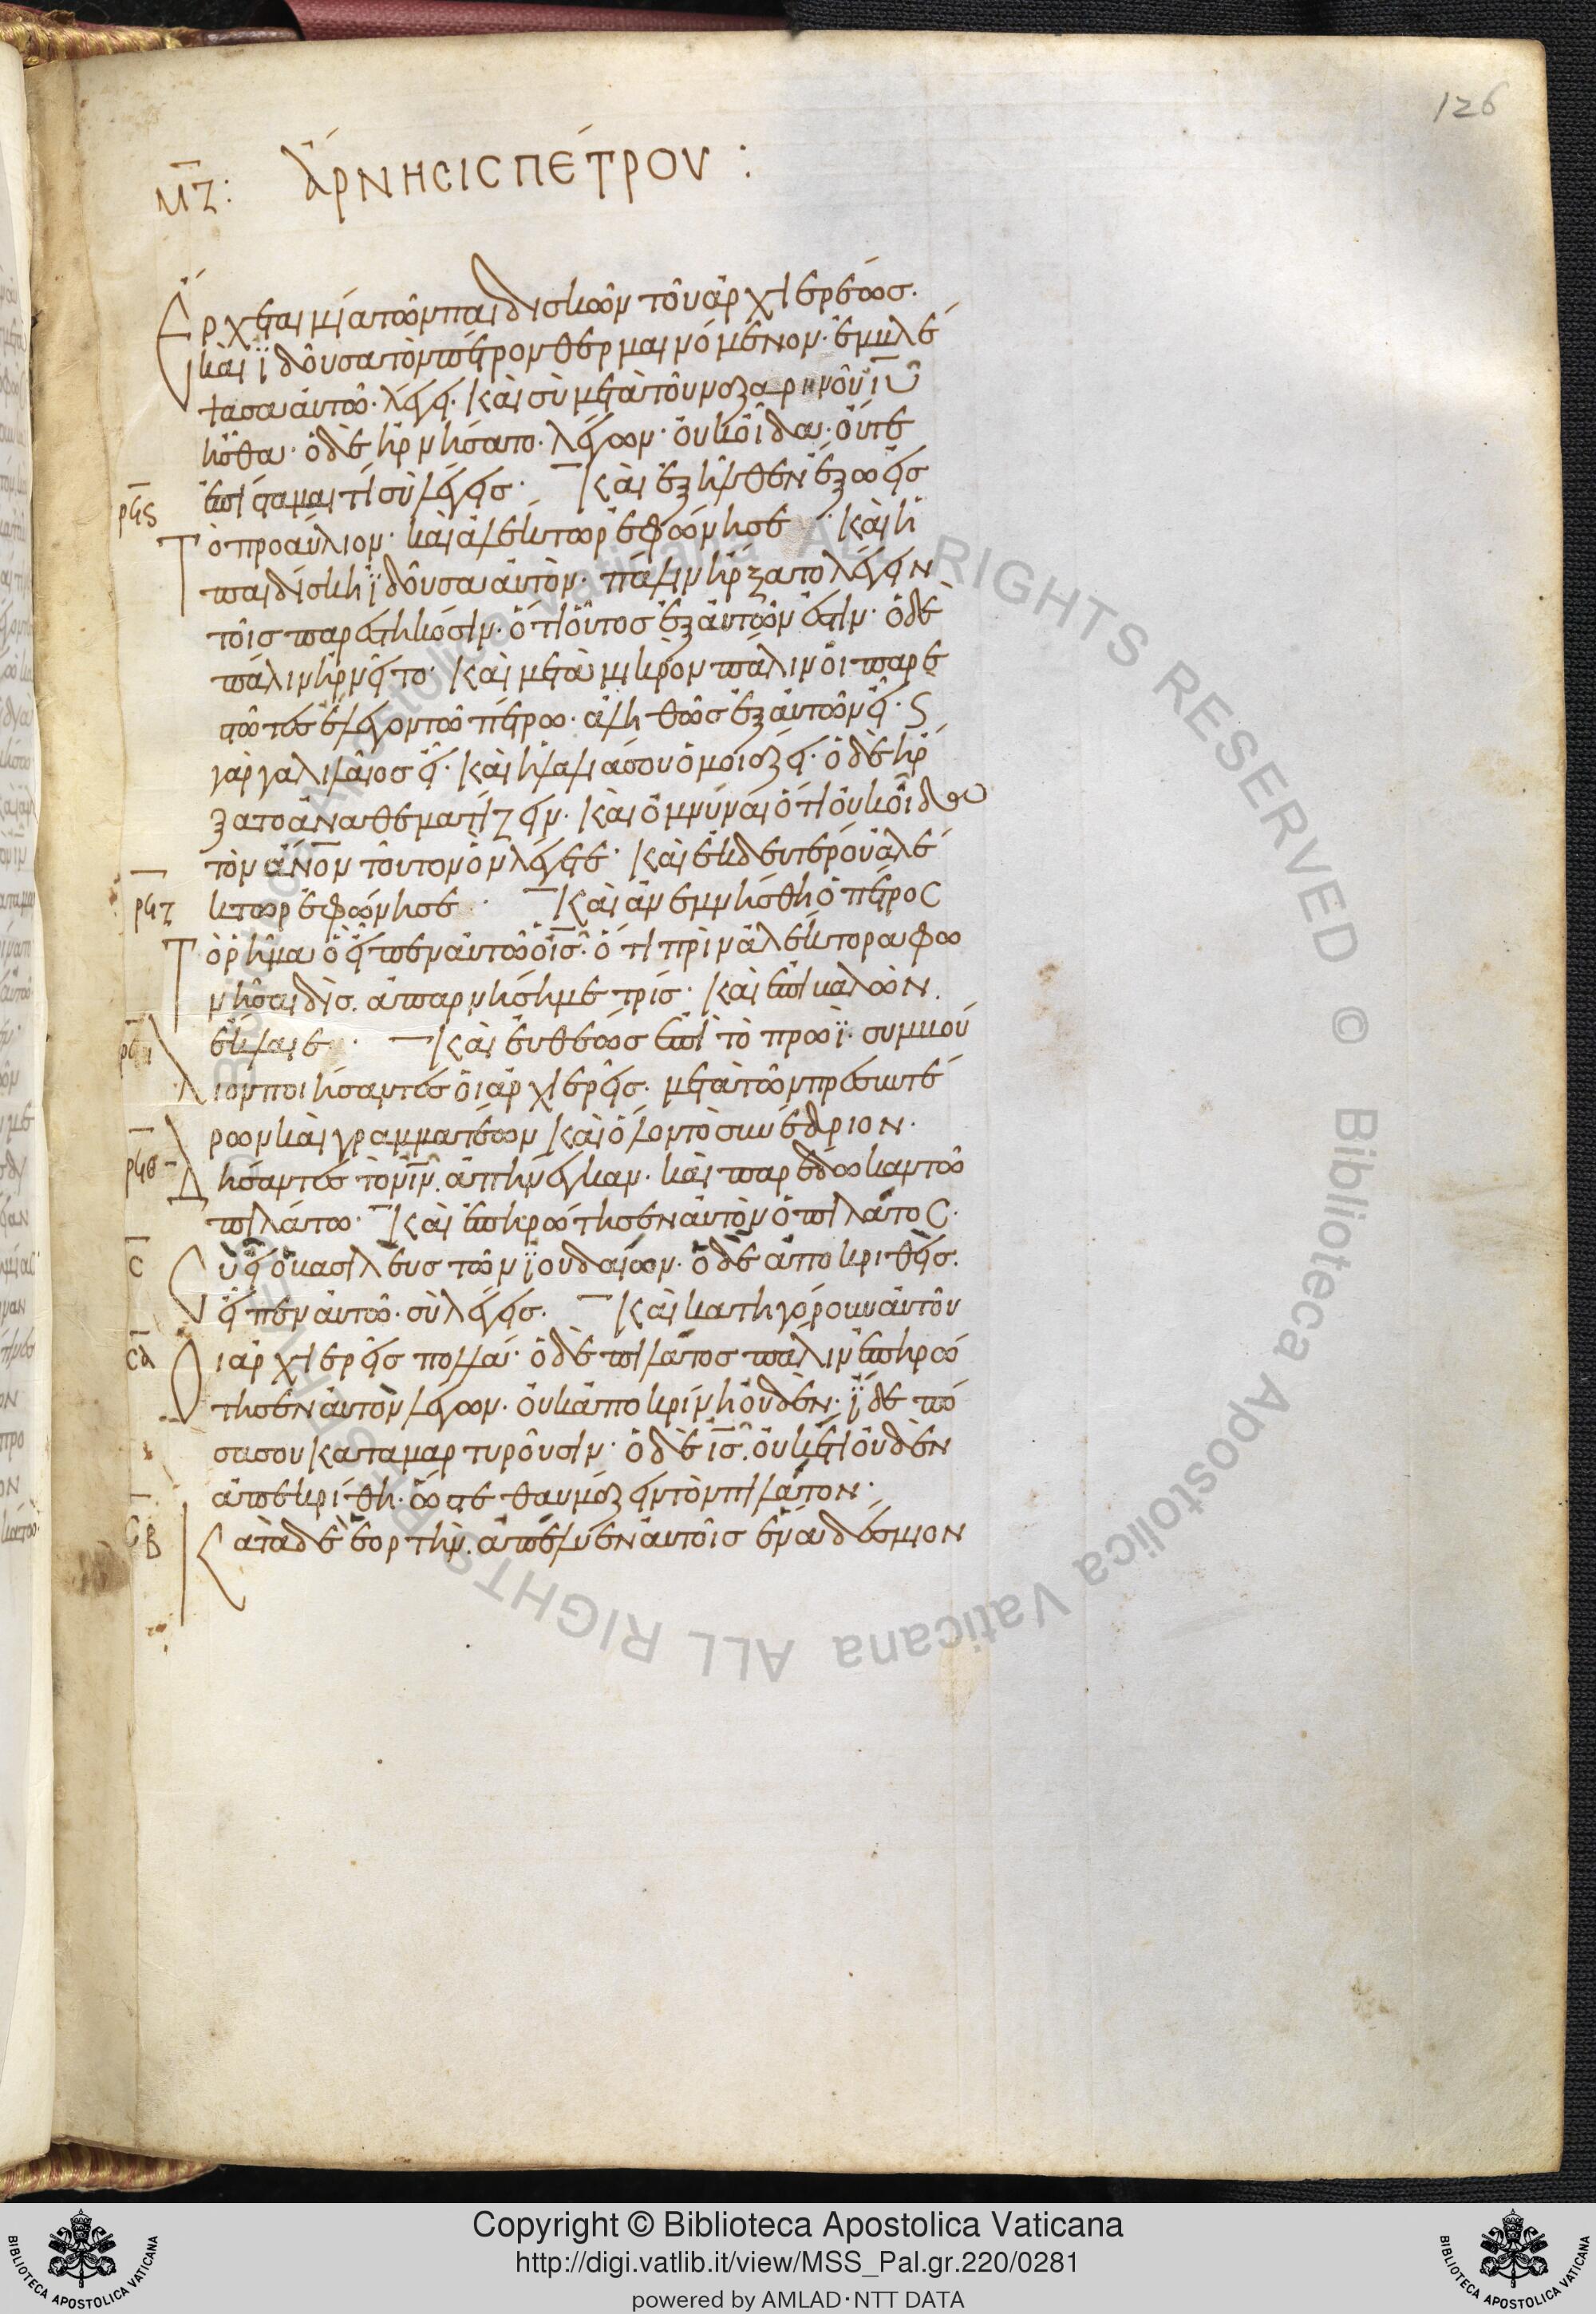 126
μζ: ἄρνησις πέτρου :
Ἔρχεται μία τῶν παιδισκῶν τοῦ ἀρχιερέωσ·
καὶ ϊδοῦσα τὸν πέτρον θερμαινόμενον· ἐμβλέ
ψασα αὐτῶ· λέγει· καὶ σὺ μετὰ τοῦ ναζαρηνοῦ ιυ
ἦσθα· ὁ δὲ ἠρνήσατο· λέγων· οὐκ οἶδα· οὔτε
ἐπίσταμαι τί σὺ λέγεισ· Καὶ ἐξῆλθεν ἔξω εἰσ
ρϟϛ
τὸ προαύλιον· καὶ ἀλέκτωρ ἐφώνησε· καὶ ἡ
παιδίσκη ϊδοῦσα αὐτὸν· πάλιν ἤρξατο λέγειν
τοῖσ παρεστηκόσιν· ὅτι οὗτοσ ἐξ αὐτῶν ἐστιν· ὁ δὲ
πάλιν ἠρνεῖτο· καὶ μετὰ μικρὸν πάλιν οἱ παρε
στῶτεσ ἔλεγον τῶ πέτρω· ἀληθῶσ ἐξ αὐτῶν εἶ· ϛ
γὰρ γαλιλαῖοσ εἶ· καὶ ἡ λαλιά σου ὁμοιάζει· ὁ δὲ ἤρ
ξατο ἀναθεματίζειν· καὶ ὀμνύναι ὅτι οὐκ οἶδα
τὸν ἄνον τοῦτον ὃν λέγετε· καὶ ἐκ δευτέρου ἀλέ
ρϟζ
κτωρ ἐφώνησε· Καὶ ἀνεμνήσθη ὁ πέτροσ
τὸ ῥῆμα ὃ εἶπεν αὐτῶ ὁ ισ· ὅτι πρὶν ἀλέκτορα φω
νῆσαι δὶσ· ἀπαρνήση με τρίσ· καὶ ἐπιβαλὼν
ρϟη
ἔκλαιε· Καὶ εὐθέωσ ἐπὶ τὸ πρωϊ· συμβού
λιον ποιήσαντεσ οἱ ἀρχιερεῖσ· μετὰ τῶν πρεσβυτέ
ρων καὶ γραμματέων καὶ ὅλον τὸ συνέδριον·
ρϟθ
δήσαντεσ τὸν ιν· ἀπήνεγκαν· καὶ παρέδωκαν τῶ
πιλάτω· Καὶ ἐπηρώτησεν αὐτὸν ὁ πιλᾶτοσ·
σ
σὺ εἶ ὁ βασιλεὺσ τῶν ϊουδαίων· ὁ δὲ ἀποκριθεὶσ·
εἶπεν αὐτῶ· σὺ λέγεισ· Καὶ κατηγόρουν αὐτοῦ
σα
οἱ ἀρχιερεῖσ πολλά· ὁ δὲ πιλᾶτοσ πάλιν ἐπηρώ
τησεν αὐτὸν λέγων· οὐκ ἀποκρίνη οὐδὲν· ϊδε πό
σα σου καταμαρτυροῦσιν· ὁ δὲ ισ· οὐκέτι οὐδὲν
ἀπεκρίθη· ὥστε θαυμάζειν τὸν πιλᾶτον·
σβ
Κατὰ δὲ ἑορτὴν· ἀπέλυεν αὐτοῖσ ἕνα δέσμιον
Copyright © Biblioteca Apostolica Vaticana
http://digi.vatlib.it/view/MSS_Pal.gr.220/0281
powered by AMLAD·NTT DATA